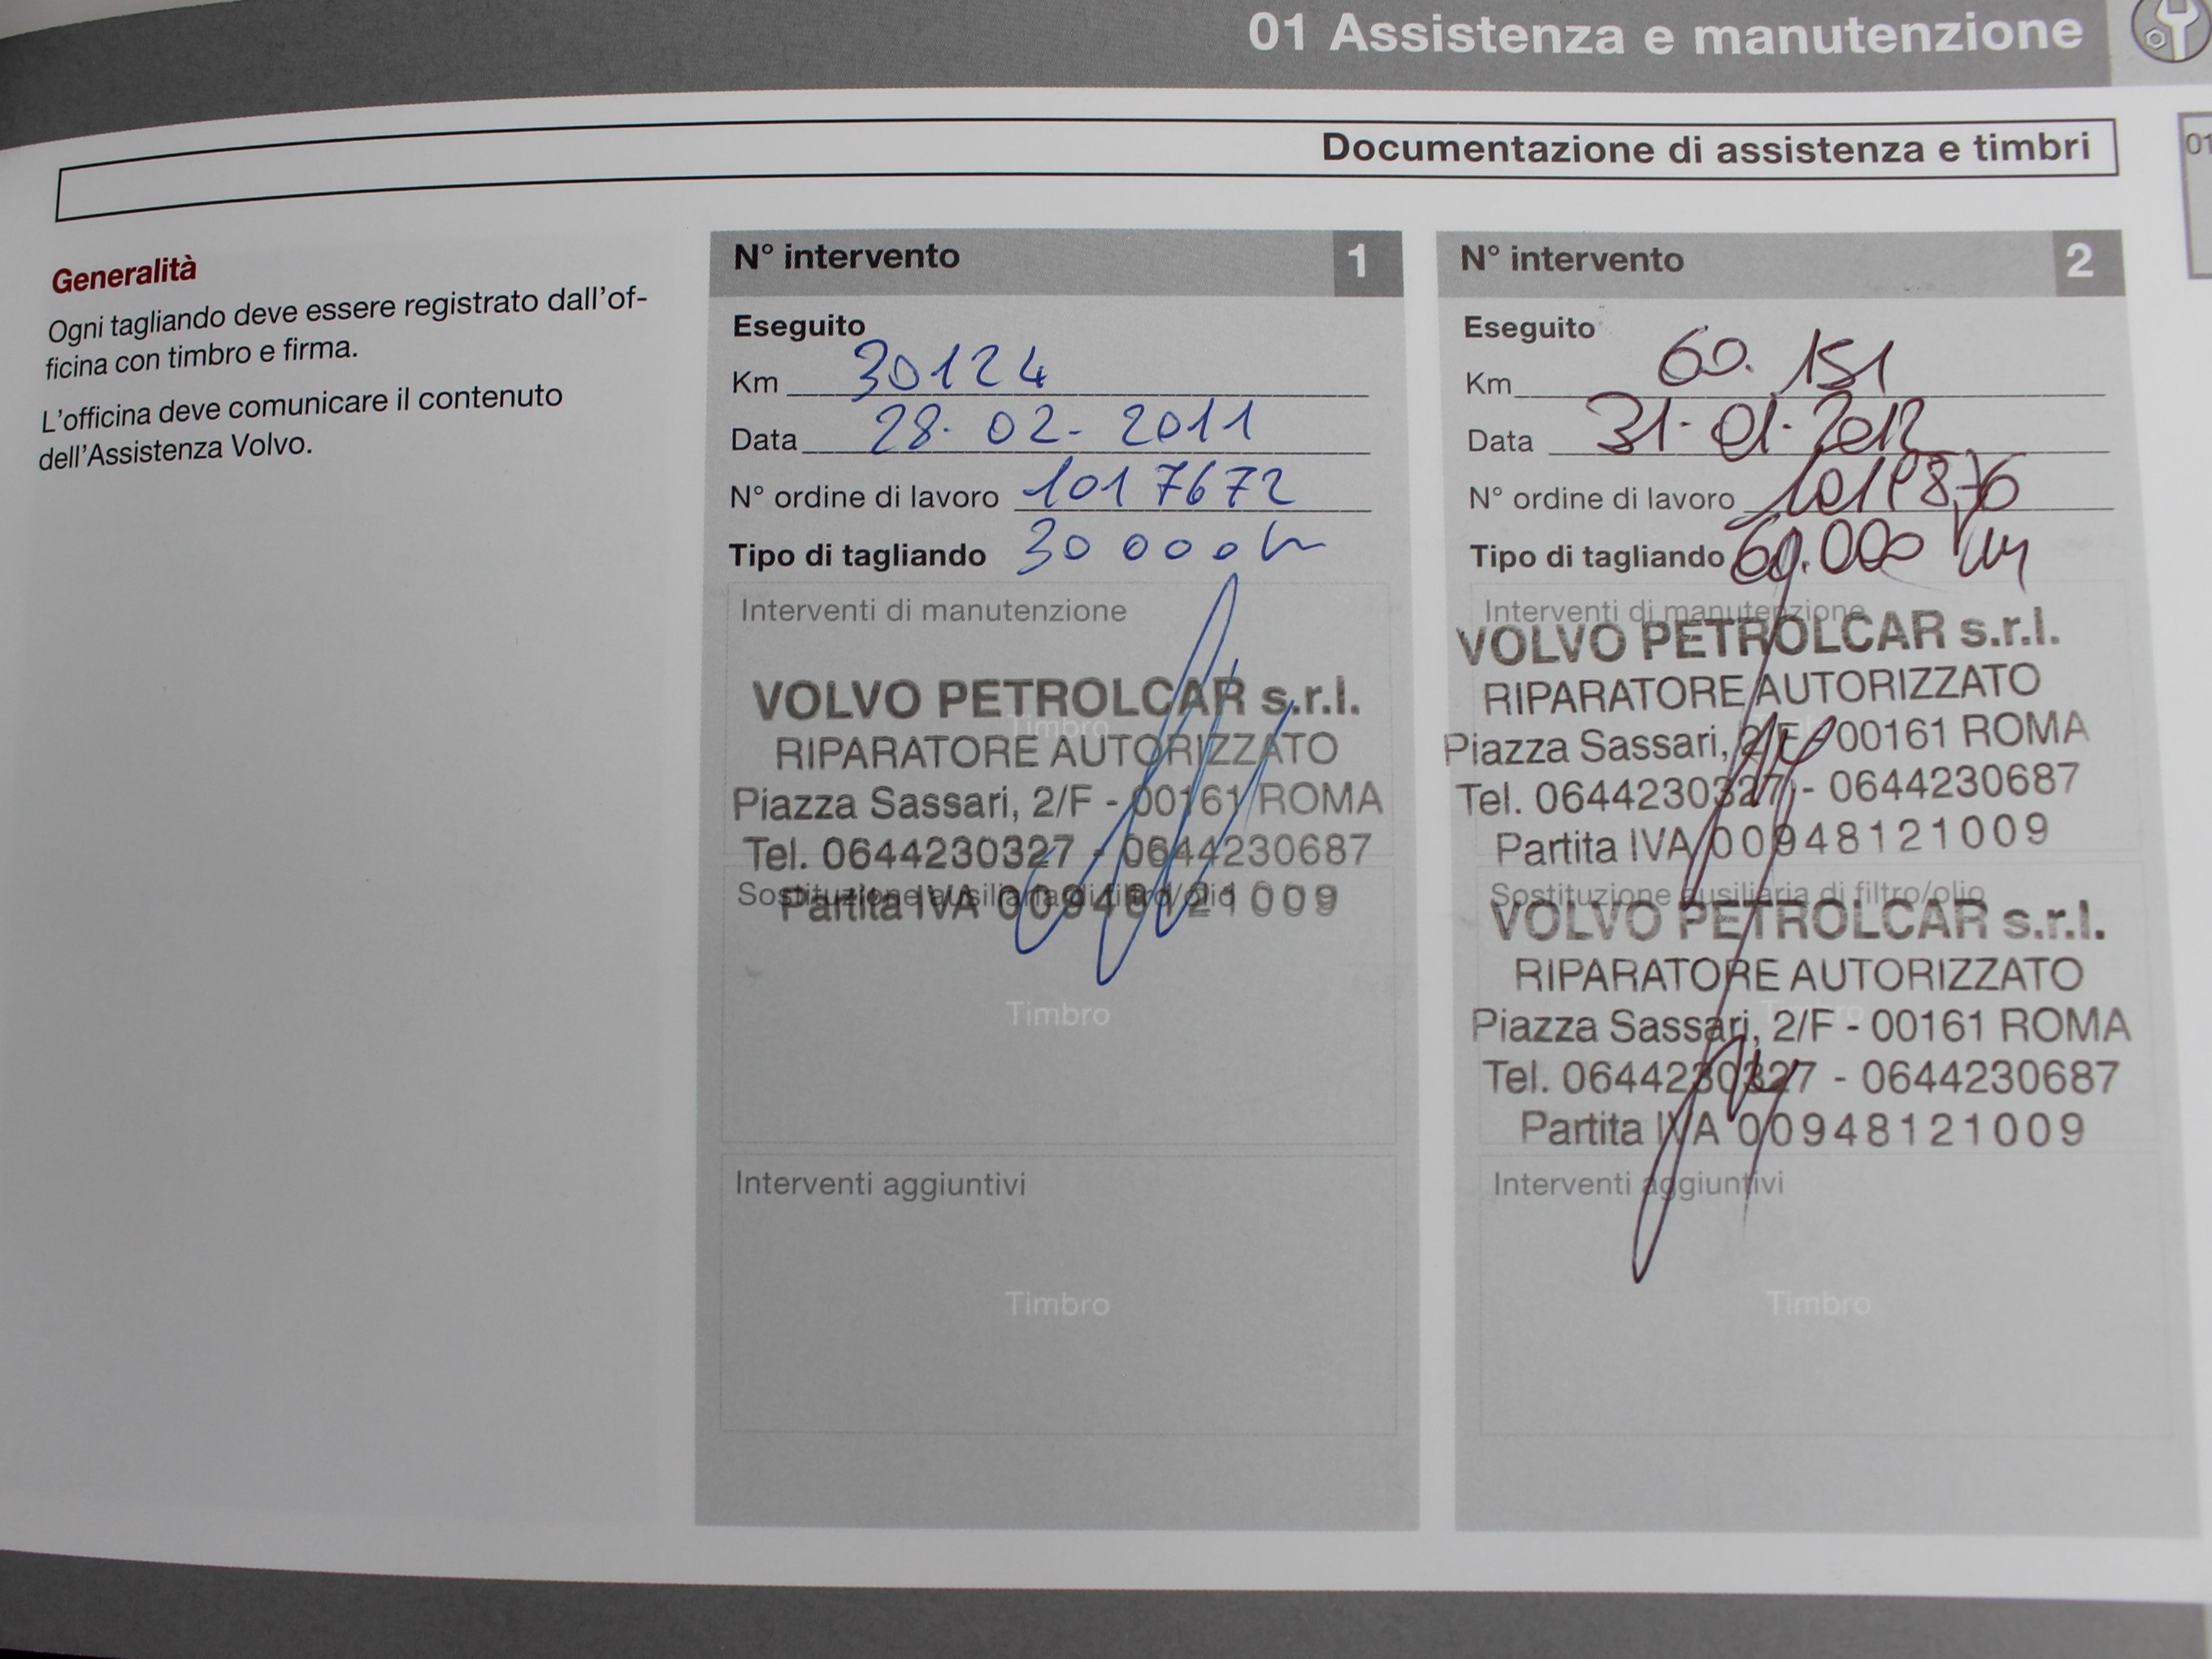 01 Assistenza e manutenzione
Documentazione di assistenza e timbri
01
Generalità
Ogni tagliando deve essere registrato dall'of-
ficina con timbro e firma.
L'officina deve comunicare il contenuto
dell'Assistenza Volvo.
N° intervento 1
Eseguito
Km 30124
Data 28-02-2011
N° ordine di lavoro 1017672
Tipo di tagliando 30 000
Interventi di manutenzione
Timbro
VOLVO PETROLCAR s.r.l.
RIPARATORE AUTORIZZATO
Piazza Sassari, 2/F - 00161 ROMA
Tel. 0644230327 - 0644230687
Sostituzione ausiliaria di filtro/olio
Partita IVA 00948121009
Timbro
Interventi aggiuntivi
Timbro
N° intervento 2
Eseguito
Km 60.151
Data 31-01-2012
N° ordine di lavoro
Tipo di tagliando 60.000 Km
Interventi di manutenzione
VOLVO PETROLCAR s.r.l.
RIPARATORE AUTORIZZATO
Piazza Sassari, 2/F - 00161 ROMA
Tel. 0644230327 - 0644230687
Partita IVA 00948121009
Sostituzione ausiliaria di filtro/olio
VOLVO PETROLCAR s.r.l.
RIPARATORE AUTORIZZATO
Timbro
Piazza Sassari, 2/F - 00161 ROMA
Tel. 0644230327 - 0644230687
Partita IVA 00948121009
Interventi aggiuntivi
Timbro